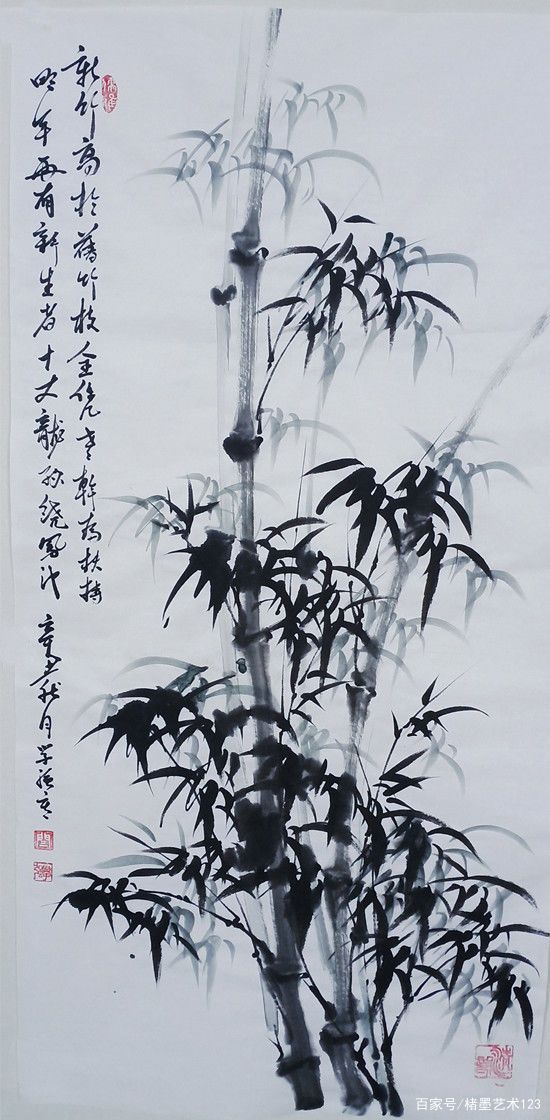 新竹高於舊竹枝全凭老幹為扶持
明年再有新生者十丈龍孫繞鳳池 辛丑秋月
百家号/楮墨艺术123